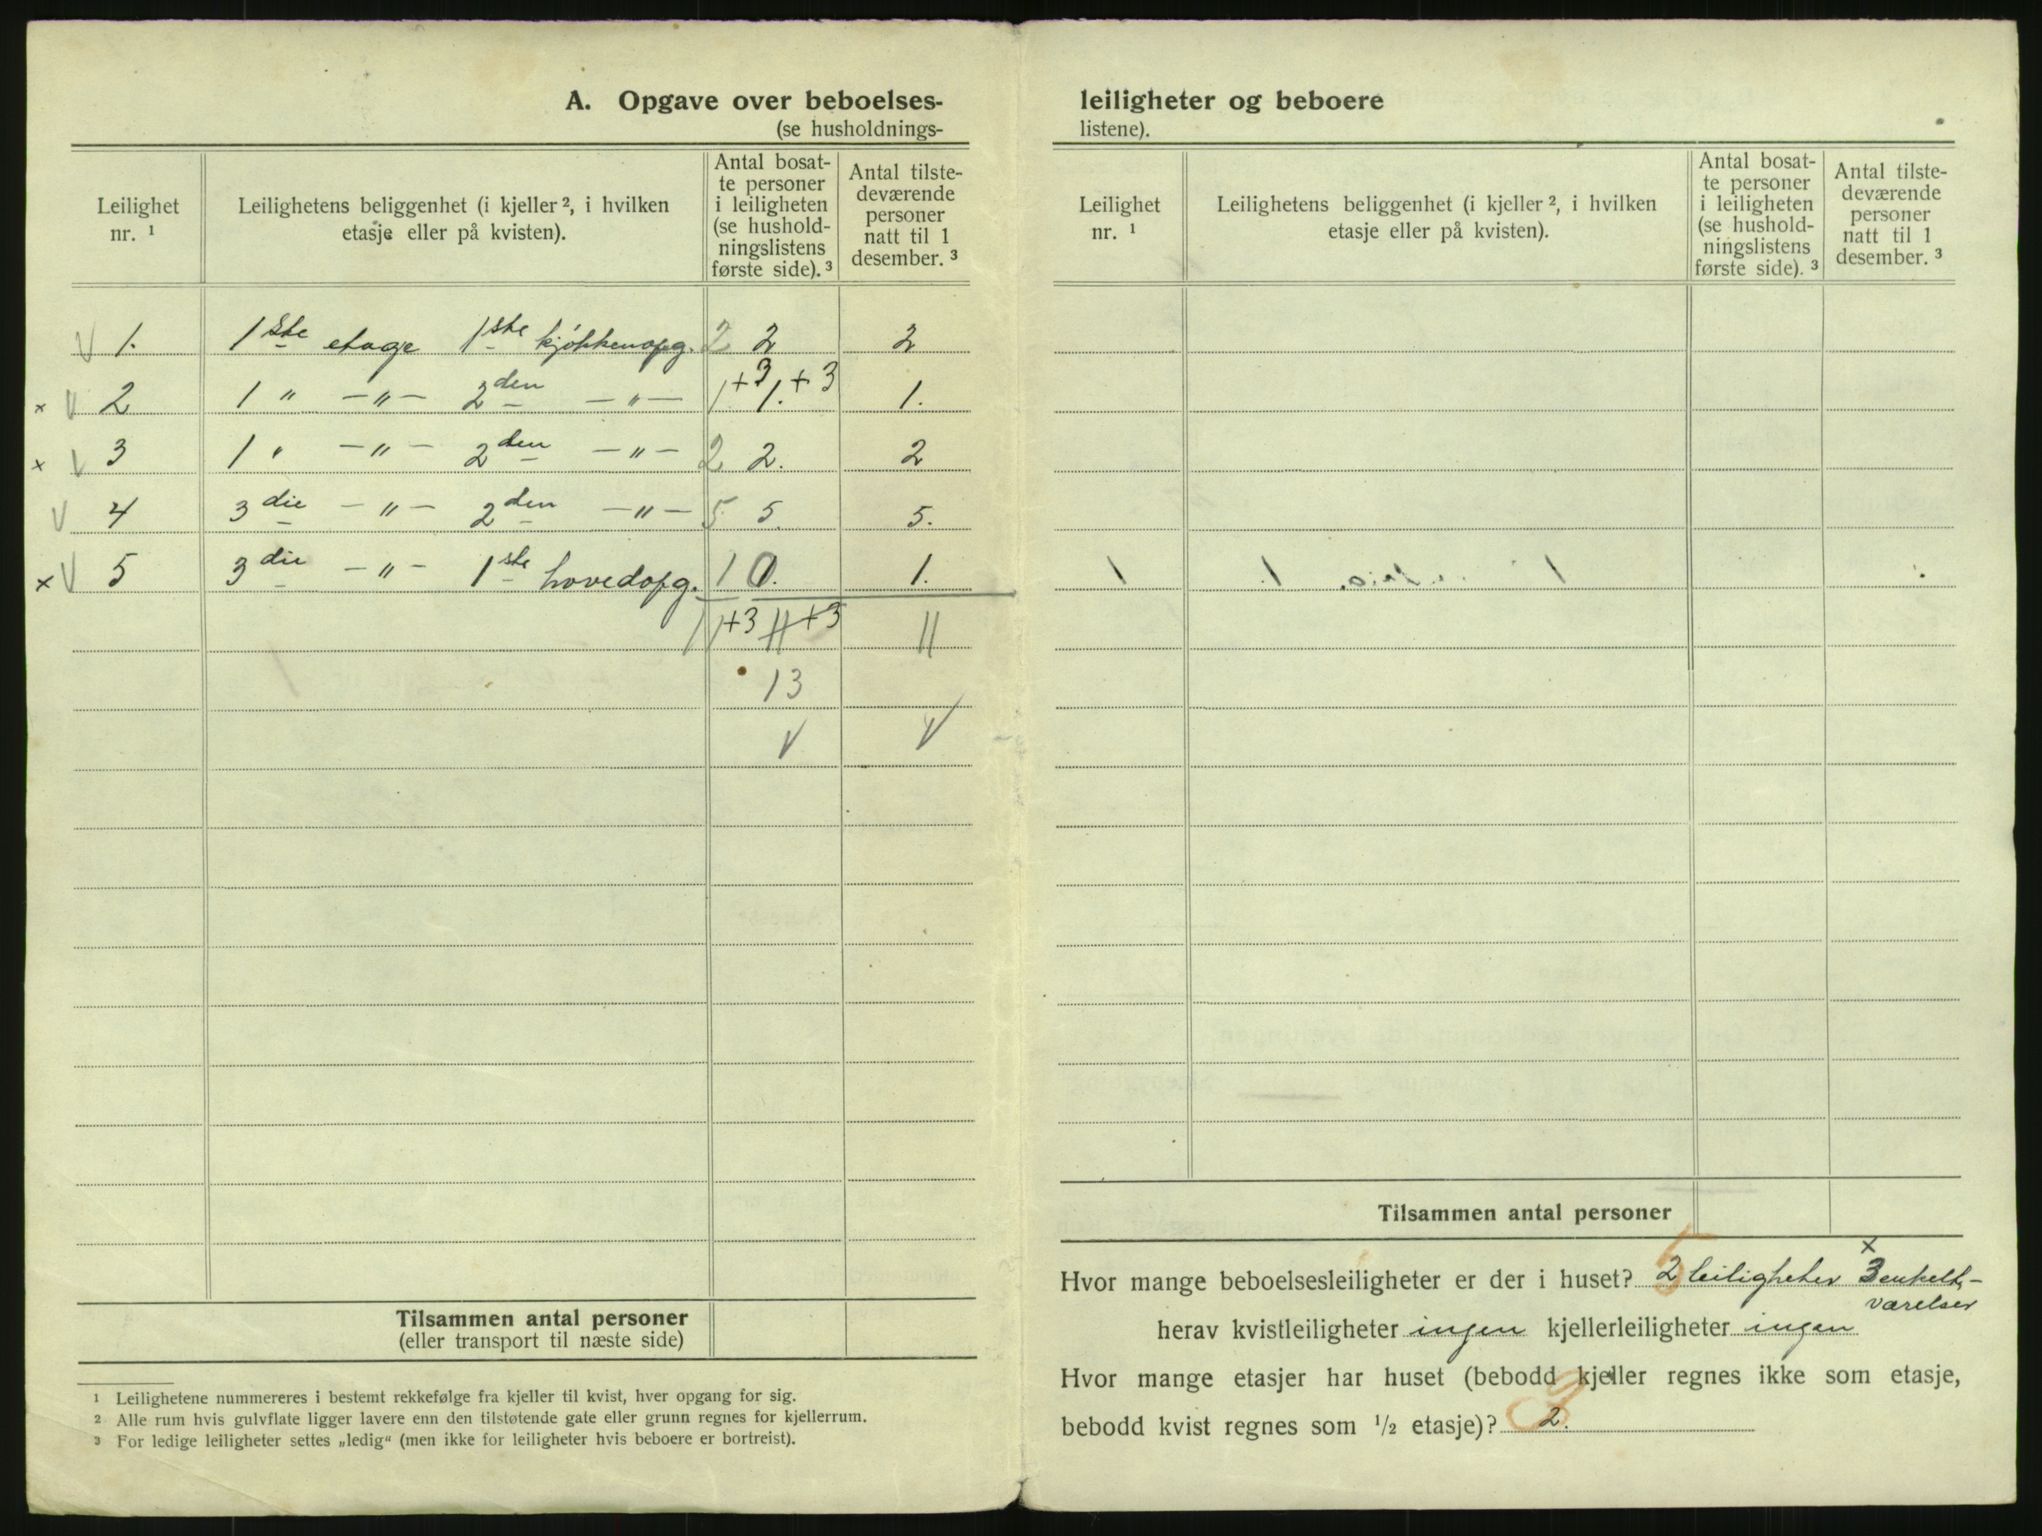 A. Opgave over beboelses-
(se husholdnings-
Leilighet nr. ¹
Leilighetens beliggenhet (i kjeller ², i hvilken etasje eller på kvisten).
Antal bosat-
te personer
i leiligheten
(se hushold-
ningslistens
første side). ³
Antal tilste-
deværende
personer
natt til 1
desember. ³
V 1. 1ste etage 1ste kjøkkenopg. 2 2 2
× V 2 1 " —"— 2den —"— 1+3 1.+3 1.
× V 3 1 " —"— 2den —"— 2 2. 2
V 4 3die —"— 2den —"— 5 5. 5.
× V 5 3die —"— 1ste hovedopg. 1 0. 1.
11+3 11+3 11
13
V V
Tilsammen antal personer
(eller transport til næste side)
¹ Leilighetene nummereres i bestemt rekkefølge fra kjeller til kvist, hver opgang for sig.
² Alle rum hvis gulvflate ligger lavere enn den tilstøtende gate eller grunn regnes for kjellerrum.
³ For ledige leiligheter settes „ledig“ (men ikke for leiligheter hvis beboere er bortreist).
leiligheter og beboere
listene).
Leilighet nr. ¹
Leilighetens beliggenhet (i kjeller ², i hvilken etasje eller på kvisten).
Antal bosat-
te personer
i leiligheten
(se hushold-
ningslistens
første side). ³
Antal tilste-
deværende
personer
natt til 1
desember. ³
Tilsammen antal personer
Hvor mange beboelsesleiligheter er der i huset? 5 2 leiligheter × 3 enkelt-
værelser
herav kvistleiligheter ingen kjellerleiligheter ingen
Hvor mange etasjer har huset (bebodd kjeller regnes ikke som etasje,
bebodd kvist regnes som ½ etasje)? 3 2.